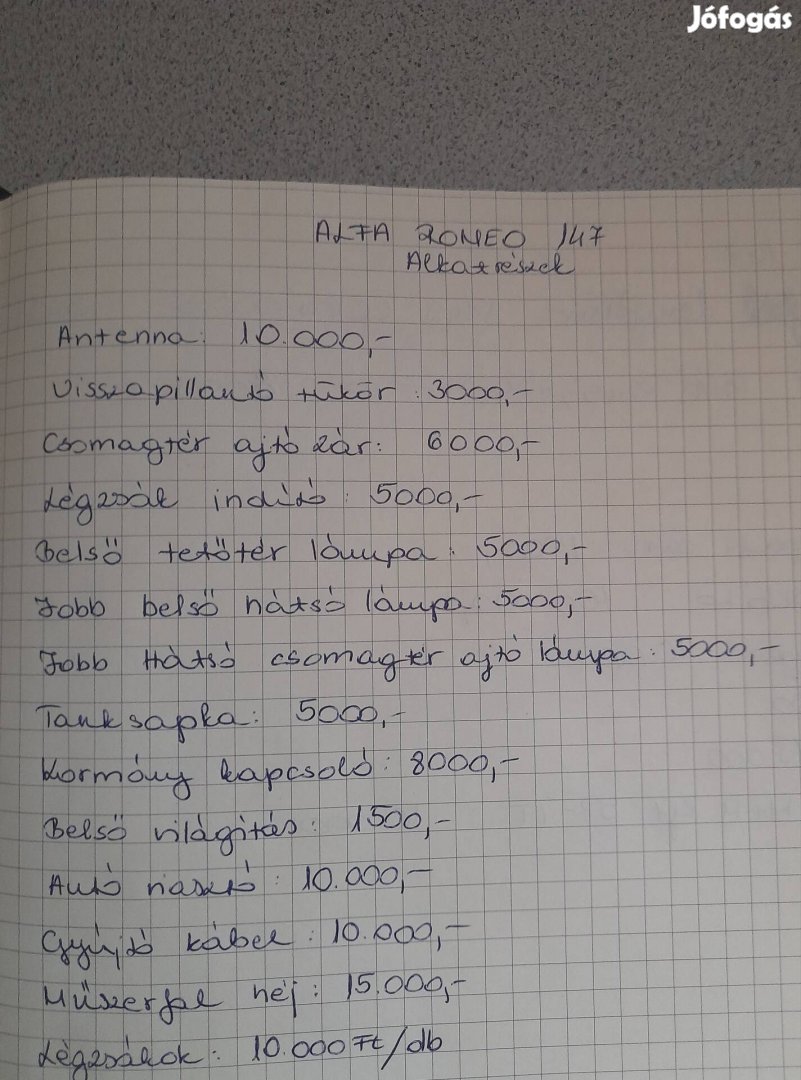 Jófogás
ALFA ROMEO 147
Alkatrészek
Antenna: 10.000,-
Visszapillantó tükör: 3000,-
Csomagtér ajtó zár: 6000,-
Légzsák indító: 5000,-
Belső tetőtér lámpa: 5000,-
Jobb belső hátsó lámpa: 5000,-
Jobb Hátsó csomagtér ajtó lámpa: 5000,-
Tanksapka: 5000,-
Kormány kapcsoló: 8000,-
Belső világítás: 1500,-
Autó riasztó: 10.000,-
Gyújtó kábel: 10.000,-
Műszerfal héj: 15.000,-
Légzsákok: 10.000 Ft/db